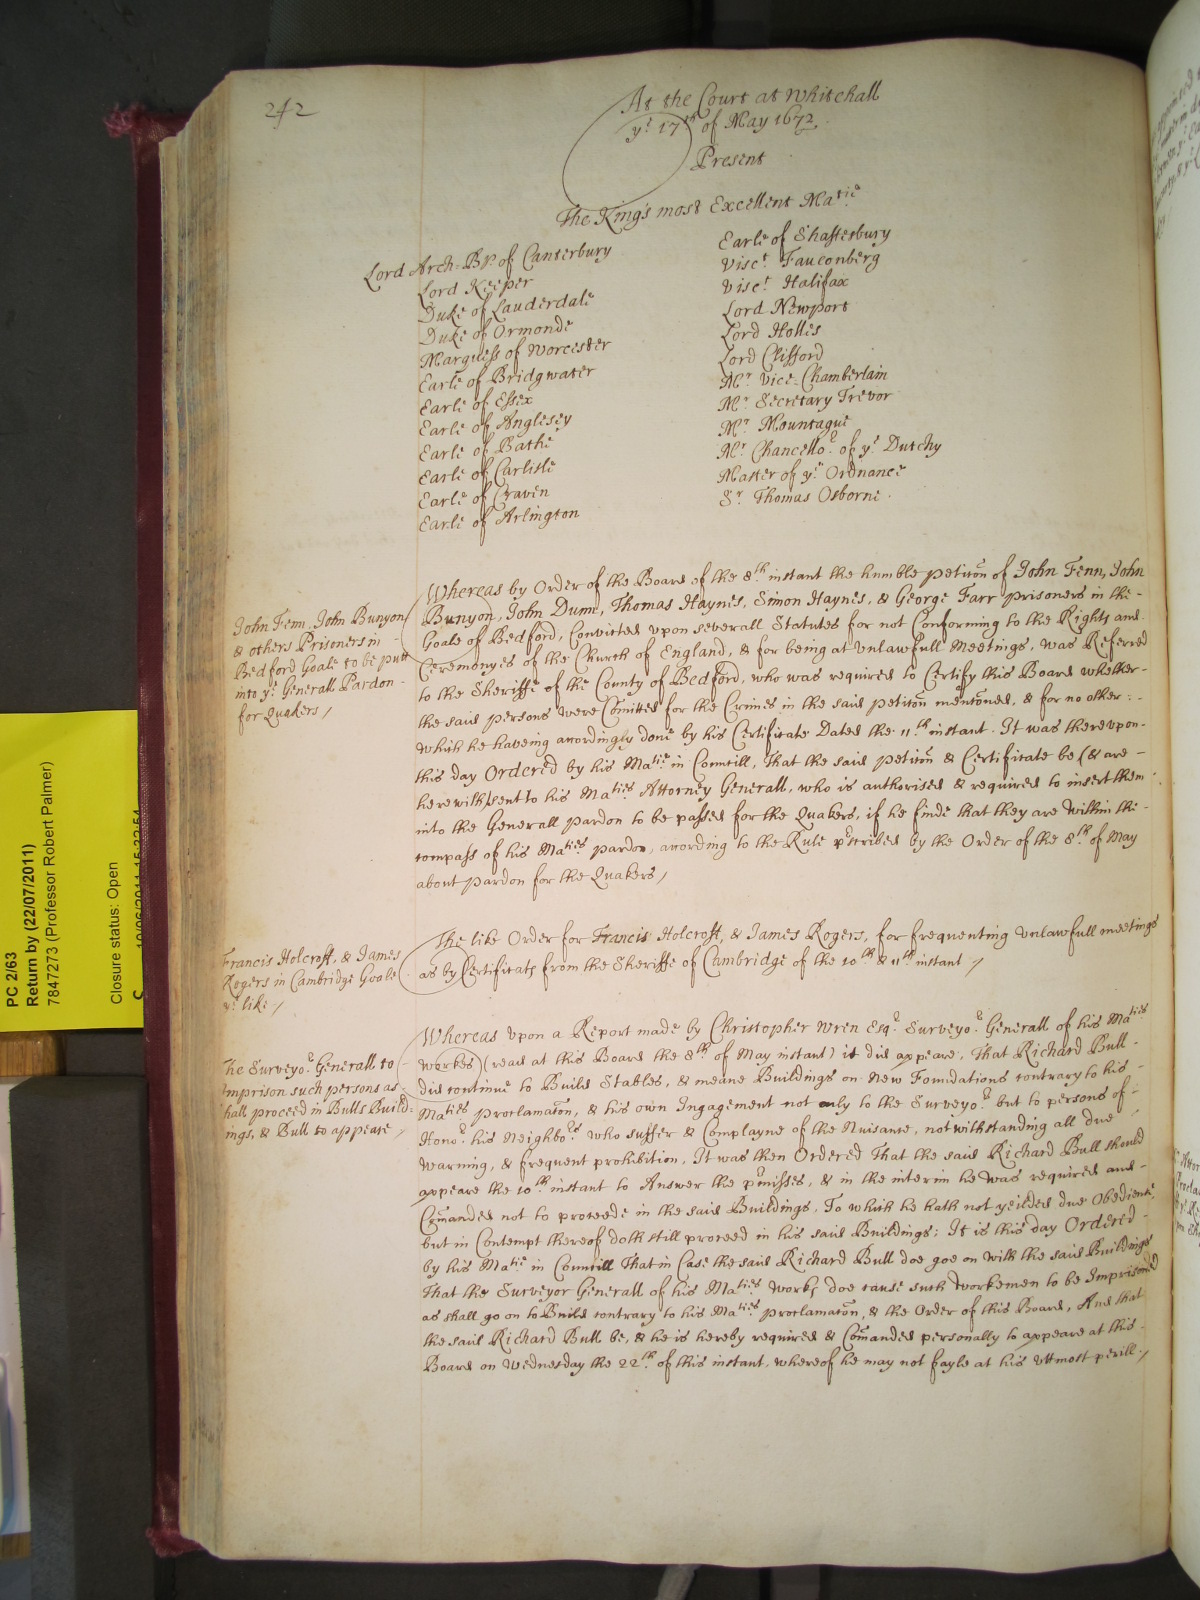 242
At the Court at Whitehall
yᵉ 17ᵗʰ of May 1672.
Present
The King's most Excellent Maᵗⁱᵉ
Lord Arch-Bᵖ. of Canterbury
Lord Keeper
Duke of Lauderdale
Duke of Ormonde
Marquess of Worcester
Earle of Bridgwater
Earle of Essex
Earle of Anglesey
Earle of Bathe
Earle of Carlisle
Earle of Craven
Earle of Arlington
Earle of Shaftesbury
Viscᵗ Fauconberg
Viscᵗ Halifax
Lord Newport
Lord Holles
Lord Clifford
Mʳ Vice-Chamberlain
Mʳ Secretary Trevor
Mʳ Mountague
Mʳ Chancelloʳ of yᵉ Dutchy
Master of yᵉ Ordnance
Sʳ Thomas Osborne.
John Fenn, John Bunyon
& others Prisoners in
Bedford Goale to be putt
into yᵉ Generall Pardon
for Quakers /
Whereas by Order of the Board of the 8ᵗʰ instant the humble petic̃on of John Fenn, John
Bunyon, John Dunn, Thomas Haynes, Simon Haynes, & George Farr prisoners in the
Goale of Bedford, Convicted upon severall Statutes for not Conforming to the Rights and
Ceremonyes of the Church of England, & for being at unlawfull Meetings, was Referred
to the Sheriffe of the County of Bedford, who was required to Certify this Board whether
the said persons were Com̃itted for the Crimes in the said petic̃on menc̃oned, & for no other:
which he haveing accordingly done by his Certificate Dated the 11ᵗʰ instant. It was thereupon
this day Ordered by his Maᵗⁱᵉ in Councill, That the said petic̃on & Certificate be (& are
herewith) sent to his Maᵗⁱᵉˢ Attorney Generall, who is authorised & required to insert them
into the Generall pardon to be passed for the Quakers, if he finde that they are within the
compass of his Maᵗⁱᵉˢ pardon, according to the Rule pʳscribed by the Order of the 8ᵗʰ of May
about pardon for the Quakers /
Francis Holcroft, & James
Rogers in Cambridge Goale
yᵉ like /
The like Order for Francis Holcroft, & James Rogers, for frequenting unlawfull meetings
as by Certificates from the Sheriffe of Cambridge of the 10ᵗʰ & 11ᵗʰ instant /
The Surveyoʳ Generall to
Imprison such persons as
shall proceed in Bulls Build:
ings, & Bull to appeare /
Whereas upon a Report made by Christopher Wren Esqʳ Surveyoʳ Generall of his Maᵗⁱᵉˢ
Workes (read at this Board the 8ᵗʰ of May instant) it did appeare, That Richard Bull
did continue to Build Stables, & meane Buildings on New Foundations contrary to his
Maᵗⁱᵉˢ Proclamac̃on, & his own Ingagement not only to the Surveyoʳ but to persons of
Honoʳ his Neighboʳˢ who suffer & Complayne of the Nuisance, notwithstanding all due
warning, & frequent prohibition, It was then Ordered That the said Richard Bull should
appeare the 10ᵗʰ instant to Answer the pʳmisses, & in the interim he was required and
Com̃anded not to proceede in the said Buildings, To which he hath not yeilded due Obedience
but in Contempt thereof doth still proceed in his said Buildings; It is this day Ordered
by his Maᵗⁱᵉ in Councill That in Case the said Richard Bull doe goe on with the said Buildings
That the Surveyor Generall of his Maᵗⁱᵉˢ Works doe cause such Workemen to be Imprisoned
as shall go on to Build contrary to his Maᵗⁱᵉˢ proclamac̃on, & the Order of this Board, And that
the said Richard Bull be, & he is hereby required & Com̃anded personally to appeare at this
Board on Wednesday the 22ᵗʰ. of this instant, whereof he may not fayle at his uttmost perill /
PC 2/63
Return by (22/07/2011)
7847273 (Professor Robert Palmer)
Closure status: Open